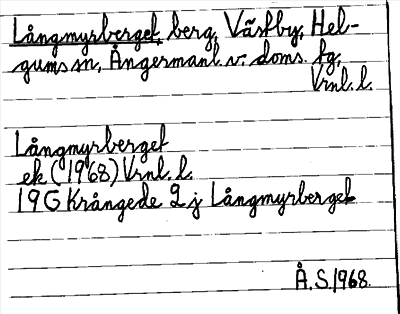 Långmyrberget, berg, Västby, Hel-
gums sn, Ångermanl. v. doms. fg,
Vrnl. l.
Långmyrberget
ek (1968) Vrnl. l.
19G Krångede 2 j Långmyrberget
Å.S. 1968.